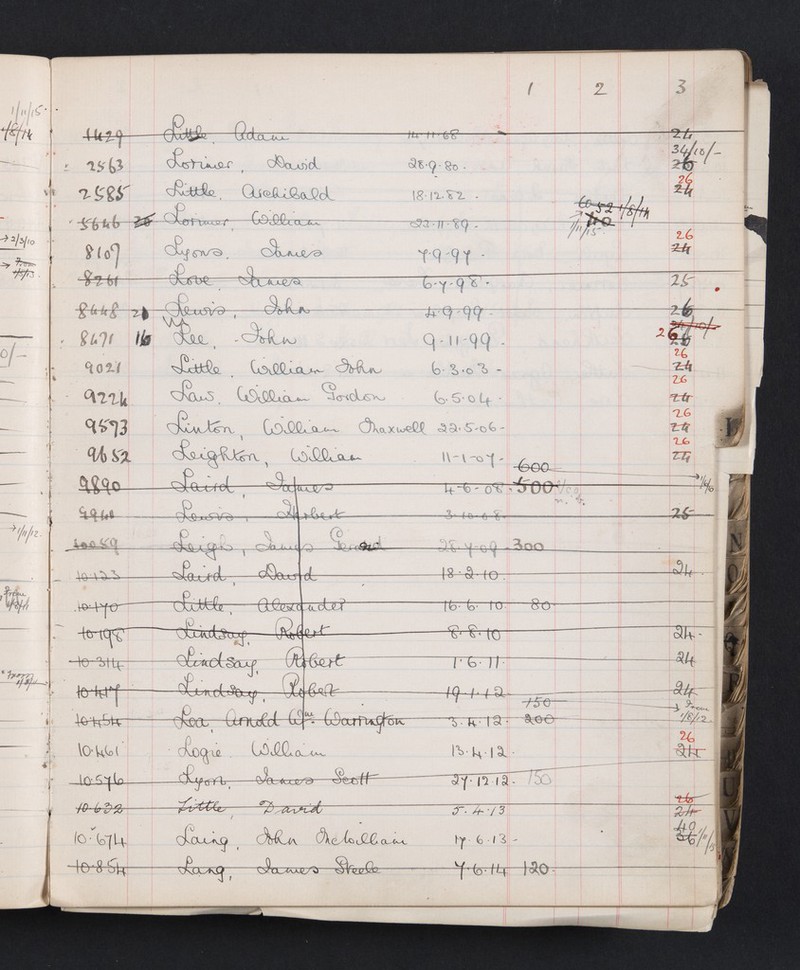 1 2 3
1429 Little, Adam 14.11.68 24
2563 Lorimer, David 28.9.80. 34/10/- 26
2585 Little, Archibald 18.12.82. 26 24
5646 26 Lorimer, William 22.11.89. 60 52 1/8/14 40 1/11/15. 
8107 Lyons, James 7.9.97. 26 24
8261 Love, James 6.7.98. 25
8448 21 Lewis, John 4.9.99. 26
8471 16 Lee, John 9.11.99. 26
9021 Little, William John 6.3.03- 26 24
9224 Law, William Gordon 6.5.04. 26 24
9573 Linton, William Maxwell 22.5.06- 26 24
9652 Leighton, William 11-1-07. 26 24
9890 Laird, James 4-6-08. 600 500
9940 Lewis, Herbert 3.10.08. 25
10059 Leigh, James Gerard 28.7.09. 300
10.123 Laird, David 18.2.10. 24
10.170 Little, Alexander 16.6.10 80
10.198 Lindsay, Robert 8.8.10 24.
10.314 Lindsay, Robert 1.6.11. 24
10.417 Lindsay, Robert 19.1.12 24
10.454 Lea, Arnold Wm. Warrington 3.4.12. 150 200 From 1/8/12.
10.461 Logie William 13.4.12. 26 24
10.576 Lyon, James Scott 27.12.12. 150
10.632 Little, David 5.4.13 26 24
10.674 Laing, John McWilliam 17.6.13- 40 36
10.854 Lang, James Steele 7.6.14 120.